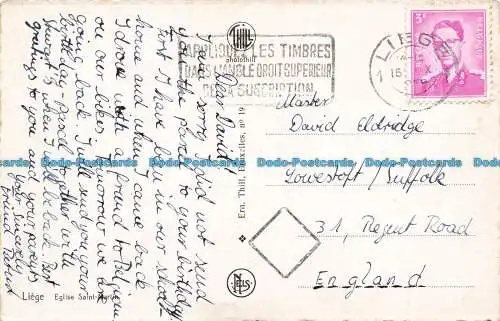 Dear David!
I am sorry, I did not send
just the parcel to your birthday
First I have been in our school-
home and when I came back
I drove with a friend to Belgium
on our bikes. Tomorrow we are
going back. I will send you your
birthday parcel together with
Stuart's when I will be back. Best
greetings to you and your parents
Your sincerely
friend
Liège Eglise Saint-
THILL
photothill
APPLIQUEZ LES TIMBRES
DANS L'ANGLE DROIT SUPERIEUR
DE LA SUSCRIPTION
Ern. Thill, Bruxelles, nº 19
NELS
LIEGE
3F
BELGIQUE
Master
David Eldridge
Lowestoft/Suffolk
31, Regent Road
England
Dodo-Postcards.com
Dodo-Postcards.com
Dodo-Postcards.com
Dodo-Postcards.com
Dodo-Postcards.com